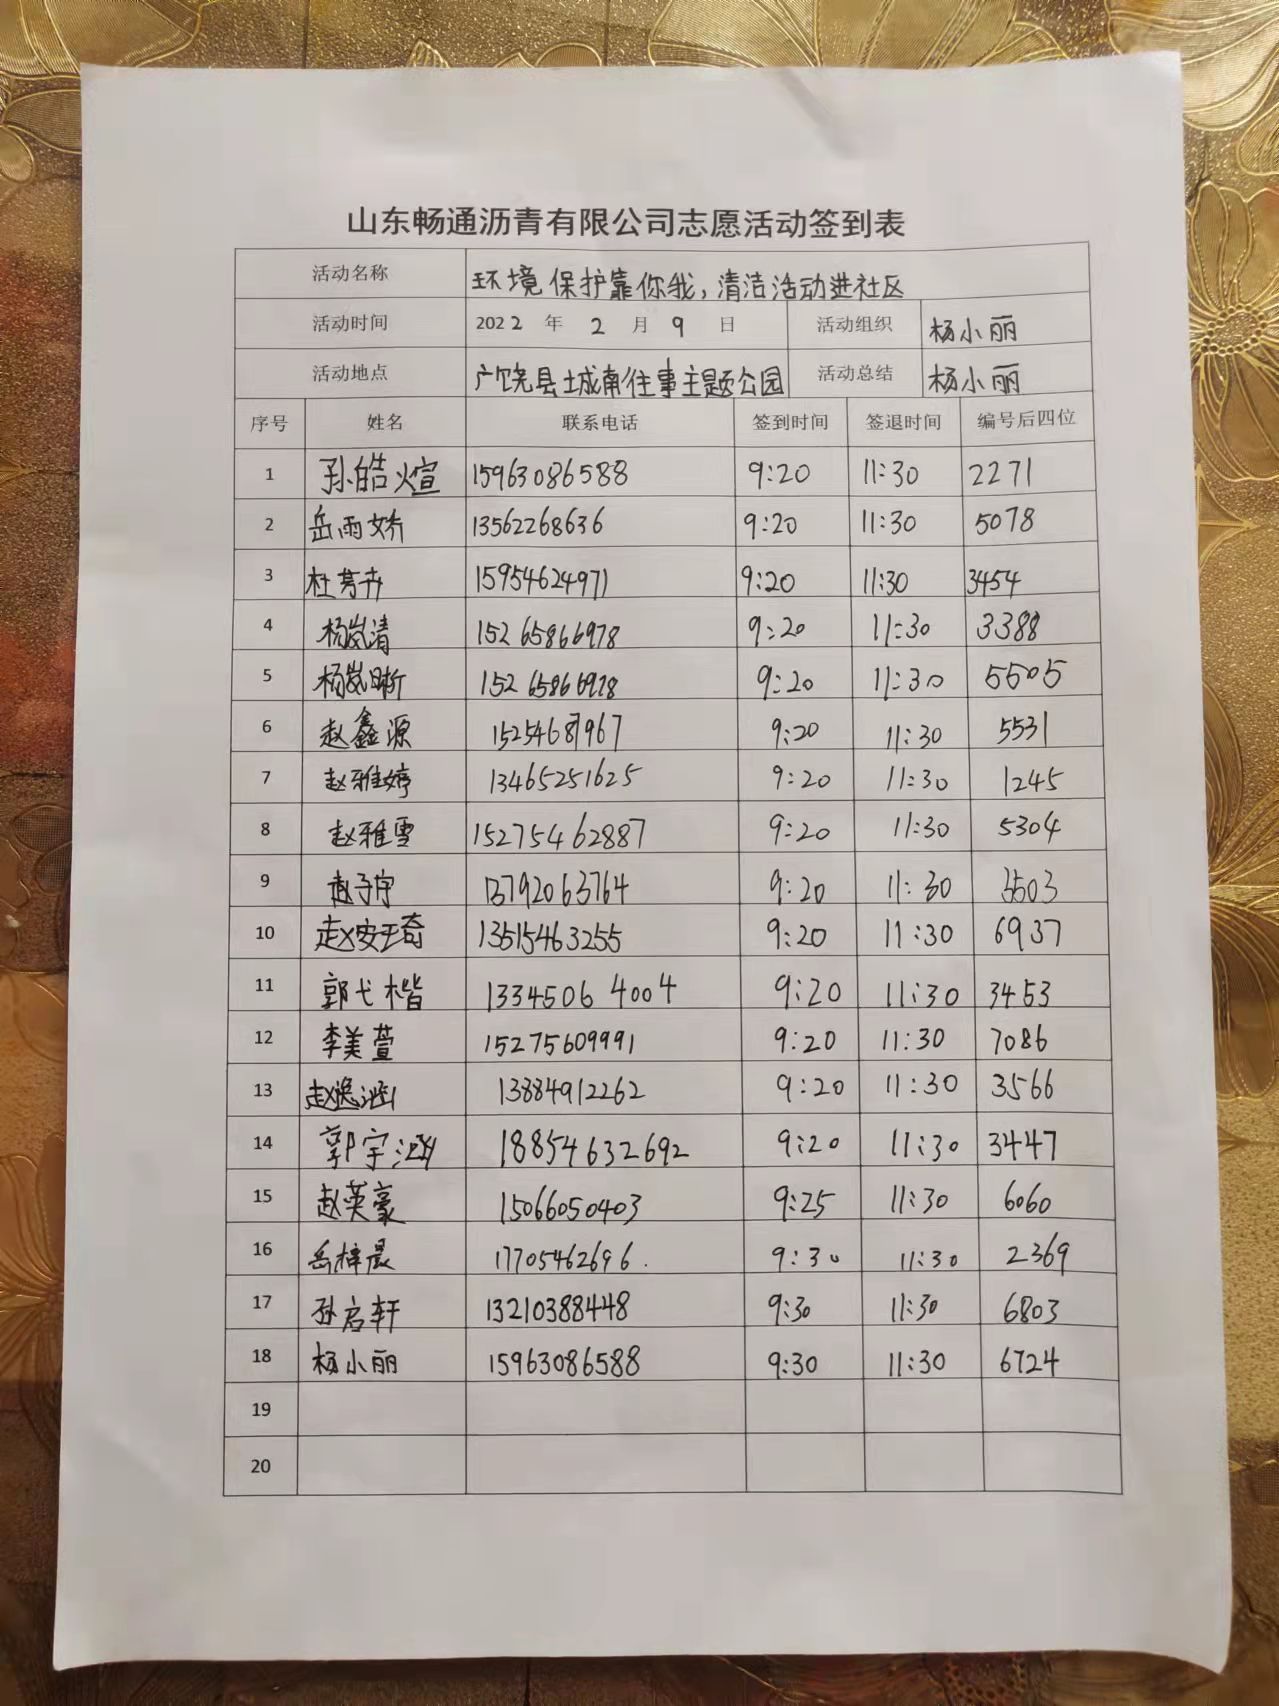 山东畅通沥青有限公司志愿活动签到表
活动名称 环境保护靠你我，清洁活动进社区
活动时间 2022 年 2 月 9 日 活动组织 杨小丽
活动地点 广饶县土城南往事主题公园 活动总结 杨小丽
序号 姓名 联系电话 签到时间 签退时间 编号后四位
1 孙皓煊 15963086588 9:20 11:30 2271
2 岳雨娇 13562268636 9:20 11:30 5078
3 杜芳卉 15954624971 9:20 11:30 3454
4 杨岚清 15265866978 9:20 11:30 3388
5 杨岚晰 15265866978 9:20 11:30 5505
6 赵鑫源 9:20 11:30 5531
7 赵雅婷 13465251625 9:20 11:30 1245
8 赵雅雪 15275462887 9:20 11:30 5304
9 赵子宇 13792063764 9:20 11:30 3503
10 赵安琦 13515463255 9:20 11:30 6937
11 郭弋楷 13345064004 9:20 11:30 3453
12 李美萱 15275609991 9:20 11:30 7086
13 赵逸涵 13884912262 9:20 11:30 3566
14 郭宇涵 18854632692 9:20 11:30 3447
15 赵英豪 15066050403 9:25 11:30 6060
16 岳梓晨 17705462696. 9:30 11:30 2369
17 孙启轩 13210388448 9:30 11:30 6803
18 杨小丽 15963086588 9:30 11:30 6724
19
20